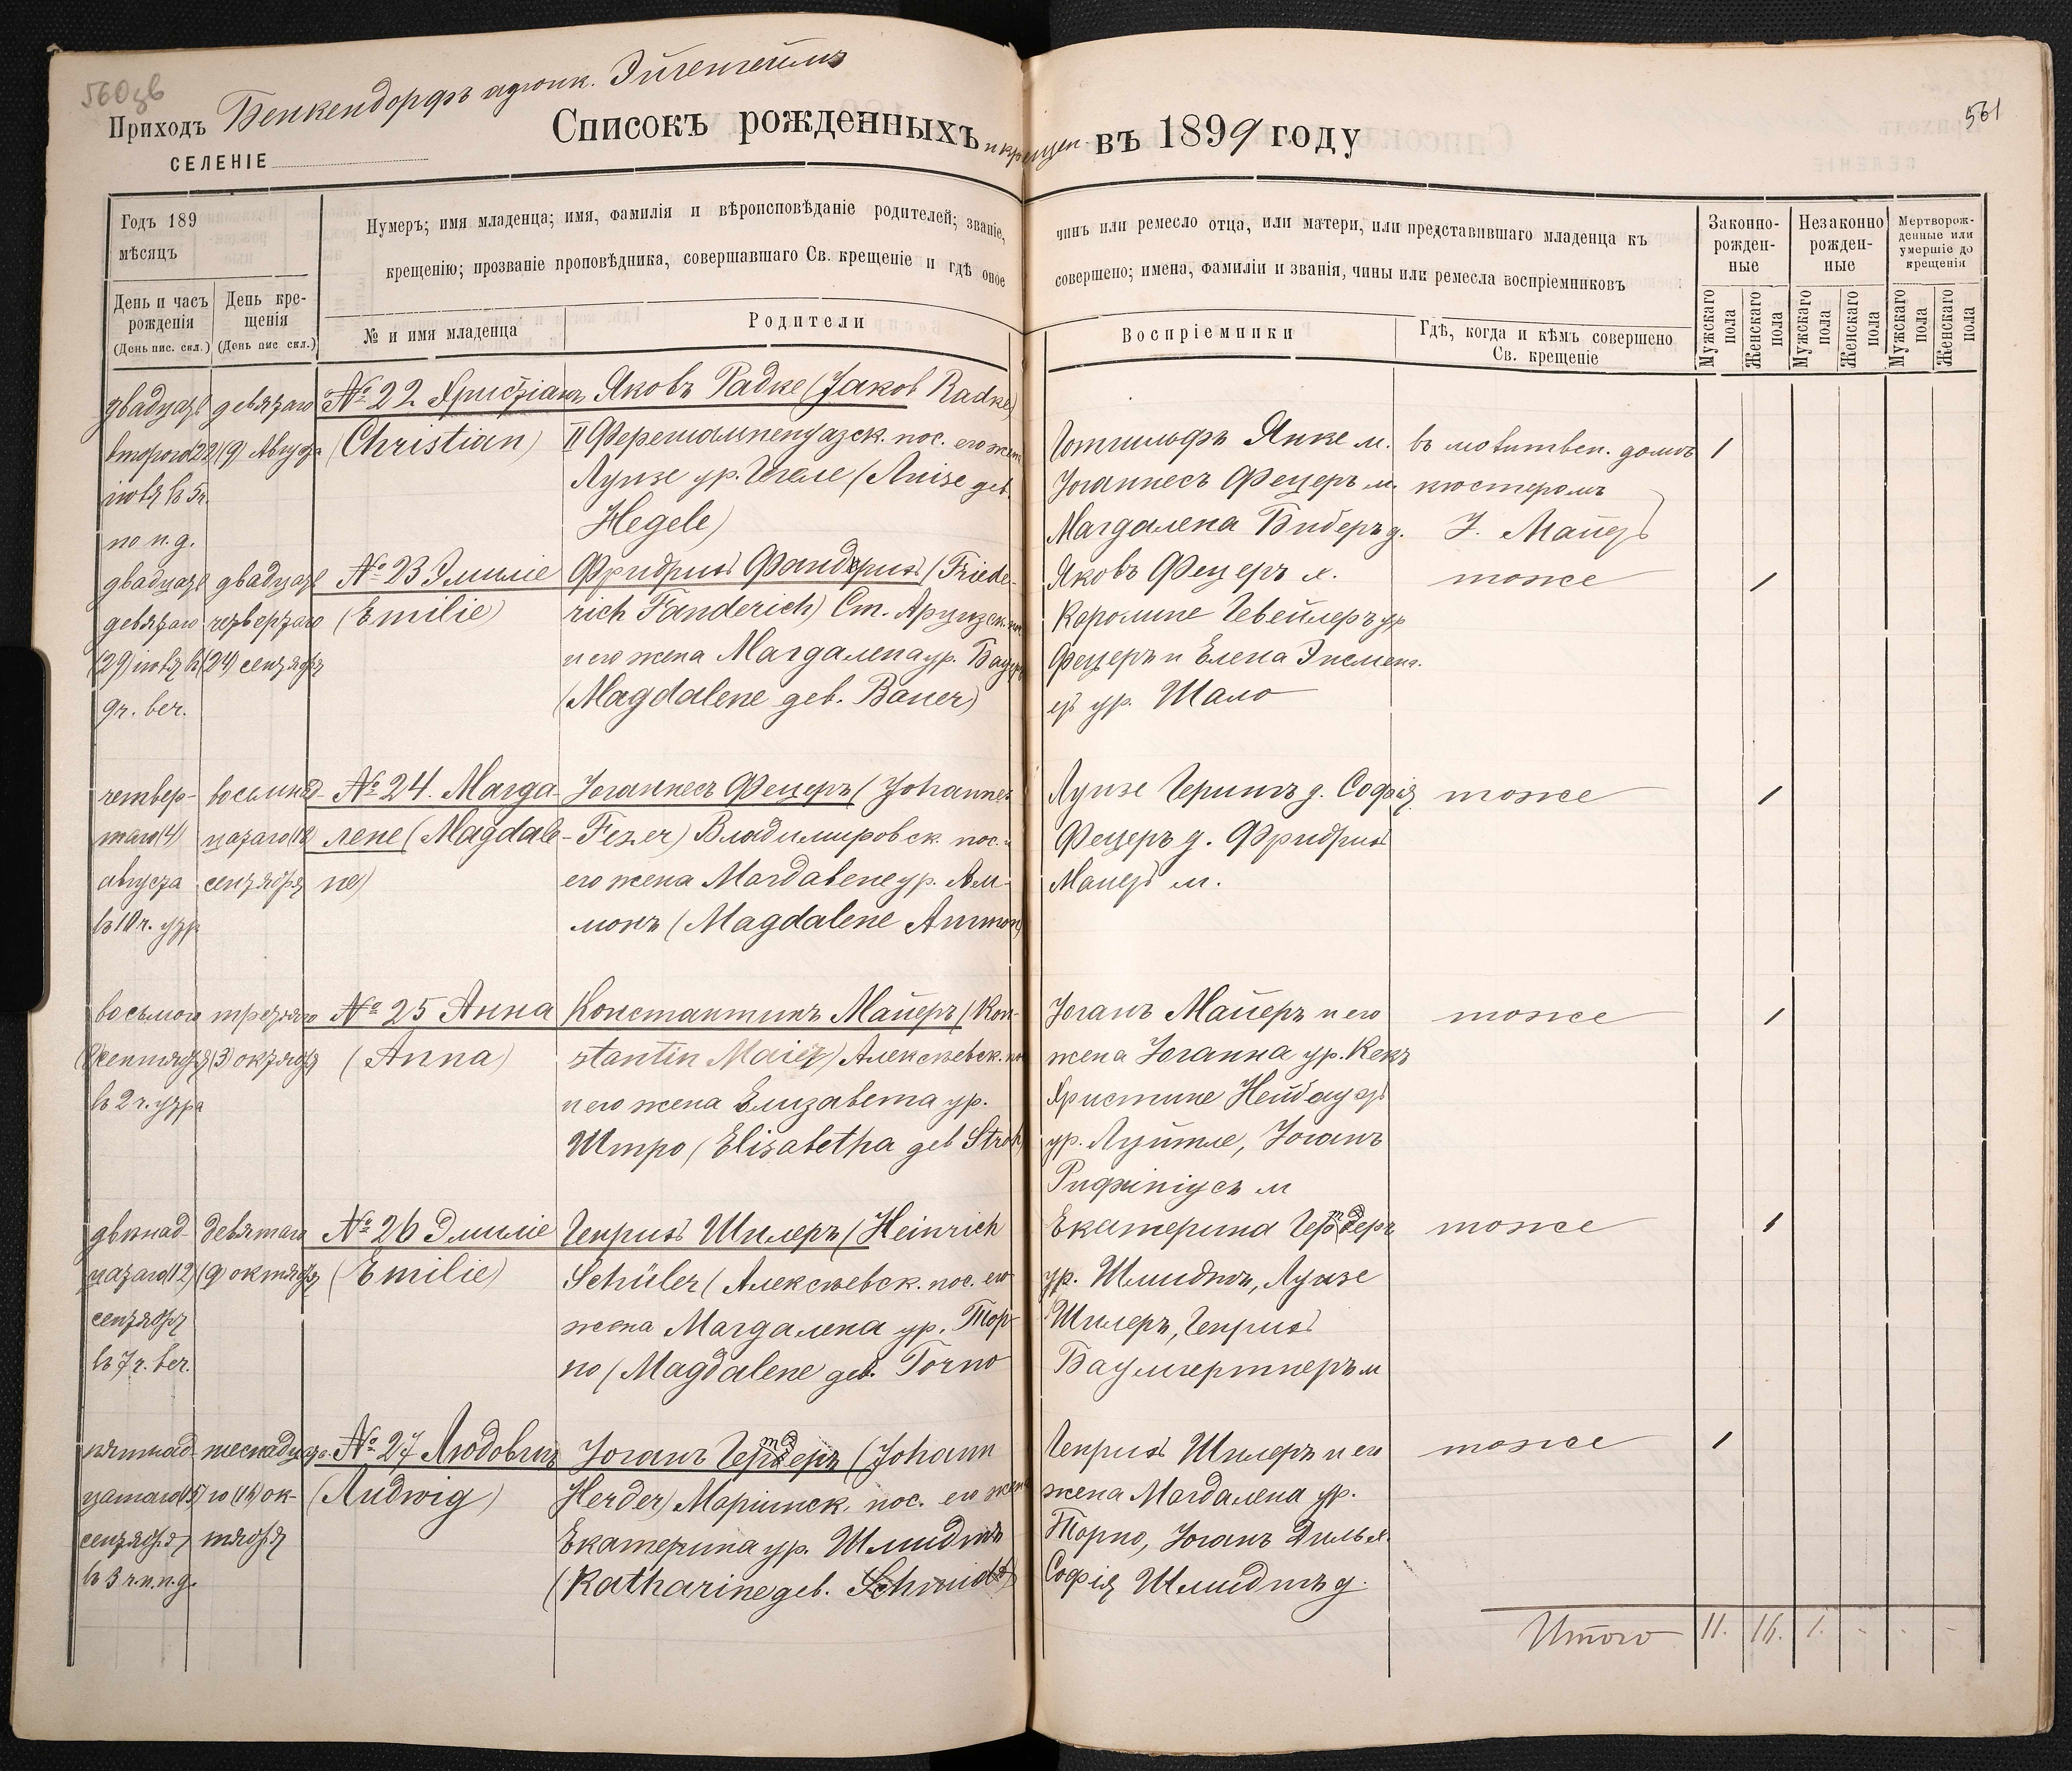 560 зв
561
Приходъ Бенкендорфъ адюнк. Эйгенгеймъ
СЕЛЕНІЕ
Списокъ рожденныхъ и крещен. въ 1899 году
Годъ 189
мѣсяцъ
День и часъ рожденія
(День пис. скл.)
День крещенія
(День пис. скл.)
Нумеръ; имя младенца; имя, фамилія и вѣроисповѣданіе родителей; званіе, чинъ или ремесло отца, или матери, или представившаго младенца къ
крещенію; прозваніе проповѣдника, совершавшаго Св. крещеніе и гдѣ оное совершено; имена, фамиліи и званія, чины или ремесла воспріемниковъ
№ и имя младенца
Родители
Воспріемники
Гдѣ, когда и кѣмъ совершено
Св. крещеніе
Законно-
рожден-
ные
Незаконно
рожден-
ные
Мертворож-
денные или
умершіе до
крещенія
Мужскаго пола
Женскаго пола
Мужскаго пола
Женскаго пола
Мужскаго пола
Женскаго пола
двадцать
второго (22)
іюля въ 5 ч.
по п. д.
девятаго
(9) Августа
№ 22 Христіанъ
(Christian)
Яковъ Радке (Jakob Radke)
II Фершампенуазск. пос. его жена
Луизе ур. Гегеле (Luise geb.
Hegele)
Готгильфъ Янке м.
Іоганнесъ Фецеръ м.
Магдалена Биберъ д.
въ молитвен. домѣ
кюстеромъ
І. Майеръ
1
двадцать
девятаго
(29) іюля въ
9 ч. веч.
двадцать
четвертаго
(24) сентября
№ 23 Эмиліе
(Emilie)
Фридрихъ Фандрихъ (Friede-
rich Fanderich) Ст. Арцизск. пос.
и его жена Магдалена ур. Бауеръ
(Magdalene geb. Bauer)
Яковъ Фецеръ х.
Каролине Гевейлеръ ур
Фецеръ и Елена
ур. Шало
тоже
1
четвер-
таго (4)
августа
въ 10 ч. утр
восьмнад-
цатаго (18)
сентября
№ 24. Магда-
лене (Magdale-
ne)
Іоганнесъ Фецеръ (Johannes
Fezer) Владимировск. пос. и
его жена Магдалене ур. Ам-
монъ (Magdalene Ammon)
Луизе Герингъ д. Софія
Фецеръ д. Фридрихъ
Маперъ м.
тоже
1
восьмого
(8) сентября
въ 2 ч. утра
третьяго
(3) октября
№ 25 Анна
(Anna)
Константинъ Майеръ (Kon-
stantin Maier) Алексѣевск. пос
и его жена Елизавета ур.
Штро (Elisabetha geb Stroh)
Іоганъ Майеръ и его
жена Іоганна ур. Кенъ
Христине Нейбауеръ
ур. Луйтле, Іоганъ
Рифиніусъ м
тоже
1
двѣнад-
цатаго (12)
сентября
въ 7 ч. веч.
девятаго
(9) октября
№ 26 Эмиліе
(Emilie)
Генрихъ Шилеръ (Heinrich
Schüler (Алексѣевск. пос. его
жена Магдалена ур. Тор-
но (Magdalene geb. Torno
Екатерина Гердеръ
ур. Шмидтъ, Луизе
Шилеръ, Генрихъ
Баумгертнеръ м
тоже
1
пятнад-
цатаго (15)
сентября
въ 3 ч. п. п. д.
шестнадцата-
го (16) ок-
тября
№ 27 Людовигъ
(Ludwig)
Іоганъ Гердеръ (Johann
Herder) Маріинск. пос. его жена
Екатерина ур. Шмидтъ
(Katharine geb. Schmidt)
Генрихъ Шилеръ и его
жена Магдалена ур.
Торно, Іоганъ Диль х.
Софія Шмидтъ д.
тоже
1
Итого 11. 16. 1. - - -